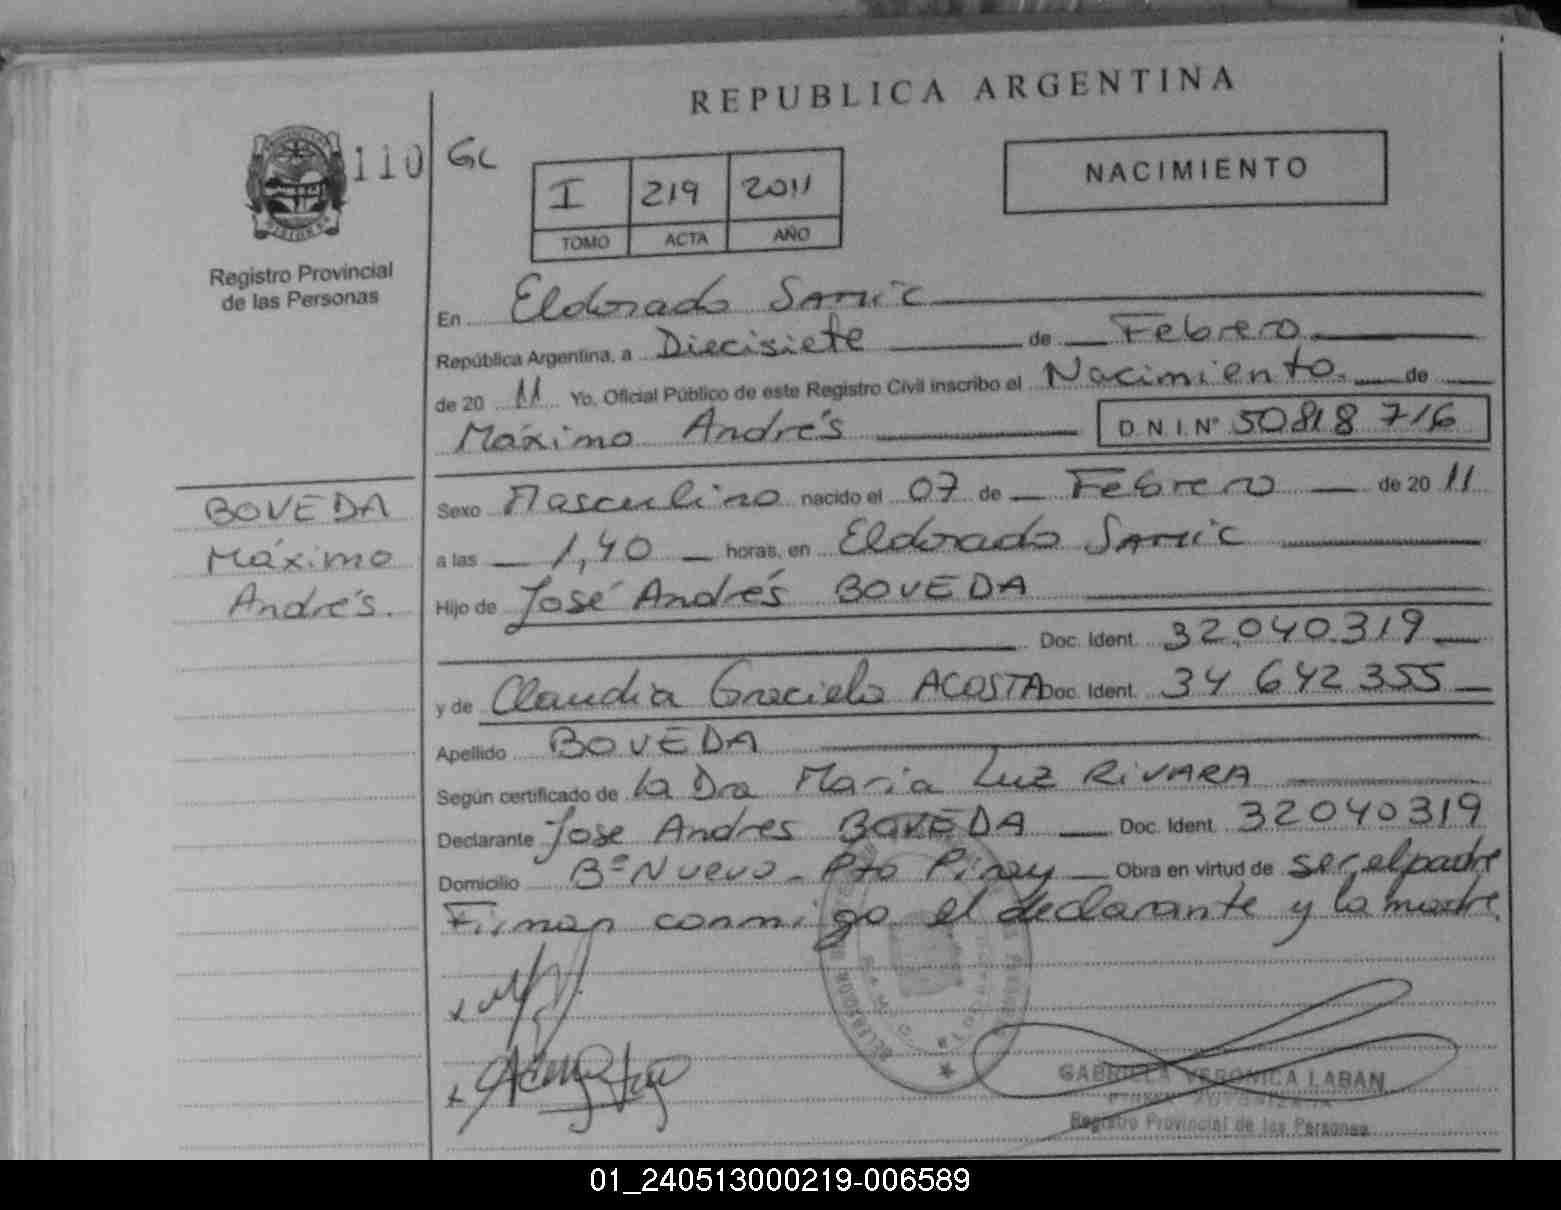 REPUBLICA ARGENTINA
110 GL
NACIMIENTO
I 219 2011
TOMO ACTA AÑO
Registro Provincial
de las Personas
En Eldorado SAMIC
República Argentina, a Diecisiete de Febrero
de 20 11 Yo, Oficial Público de este Registro Civil inscribo el Nacimiento de
Máximo Andrés D.N.I. Nº 50818 716
BOVEDA
Máximo
Andrés.
Sexo Masculino nacido el 07 de Febrero de 20 11
a las 1,40 horas, en Eldorado SAMIC
Hijo de José Andrés BOVEDA
Doc. Ident. 32.040.319
y de Claudia Graciela ACOSTA Doc. Ident. 34 642 355
Apellido BOVEDA
Según certificado de la Dra Maria Luz RIVARA
Declarante Jose Andres BOVEDA Doc. Ident. 32040319
Domicilio Bº Nuevo - Pto Piray Obra en virtud de ser el padre
Firman conmigo el declarante y la madre
GABRIELA VERONICA LABAN
Registro Provincial de las Personas
01_240513000219-006589